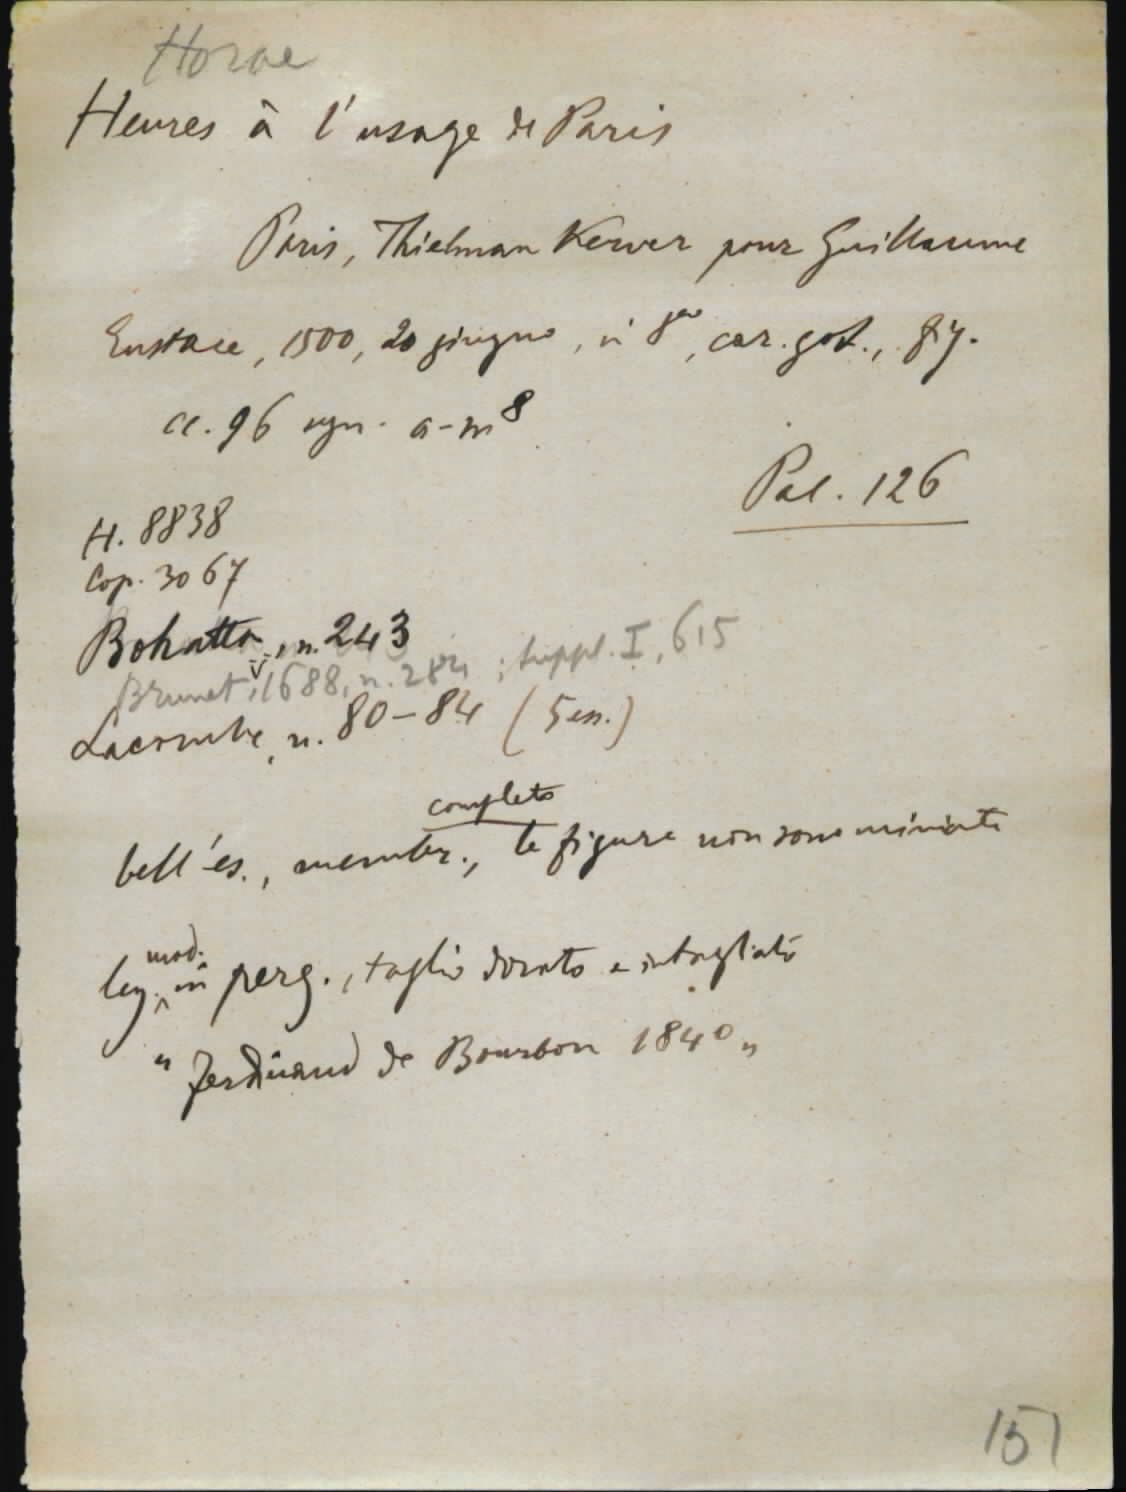 Horae
Heures à l'usage de Paris
Paris, Thielman Kerver pour Guillaume
Eustace, 1500, 20 giugno, in 8vo, car. got., fig.
cc. 96 sign. a-m8
Pal. 126
H. 8838
Cop. 3067
Bohatta, n. 243
Brunet, V, 1688, n. 284; suppl. I, 615
Lacombe, n. 80-84 (5 es.)
completo
bell'es., membr., le figure non sono miniate
mod.
leg. in perg., taglio dorato e intagliato
"Ferdinand de Bourbon 1840"
151